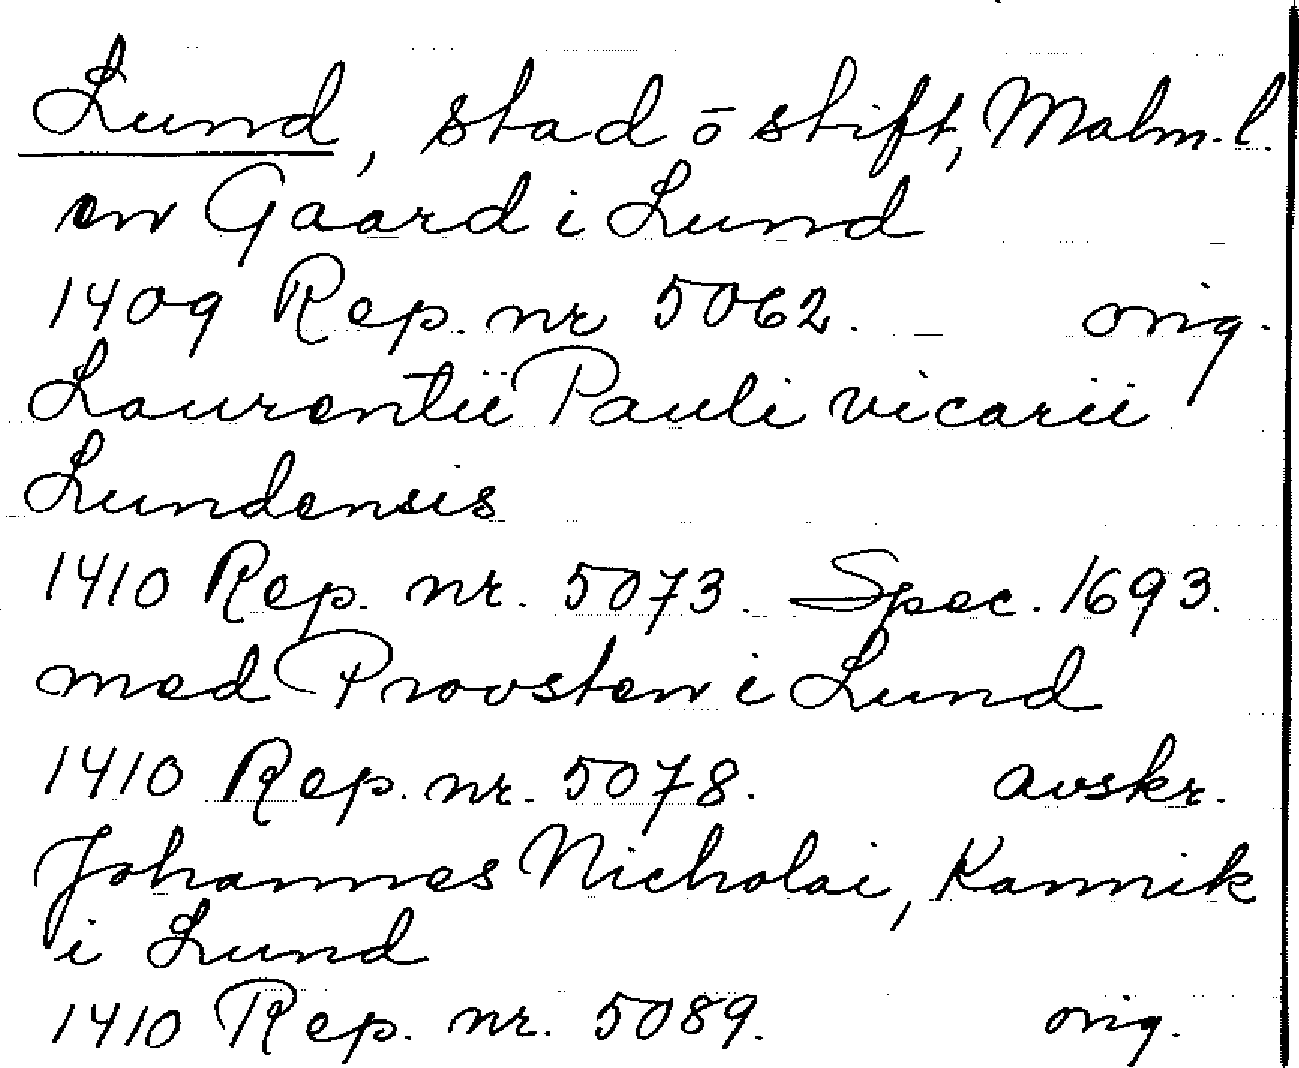 Lund, stad ō stift, Malm. l.
en Gaard i Lund
1409 Rep. nr 5062. – orig.
Laurentii Pauli vicarii
Lundensis
1410 Rep. nr. 5073. Spec. 1693.
med Provsten i Lund
1410 Rep. nr. 5078. avskr.
Johannes Nicholai, Kannik
i Lund
1410 Rep. nr. 5089. orig.